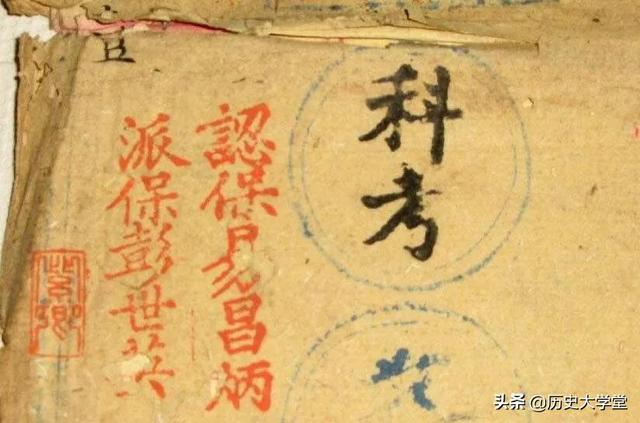 科考
認保易昌炳
派保彭世英
紫卿
头条 @历史大学堂